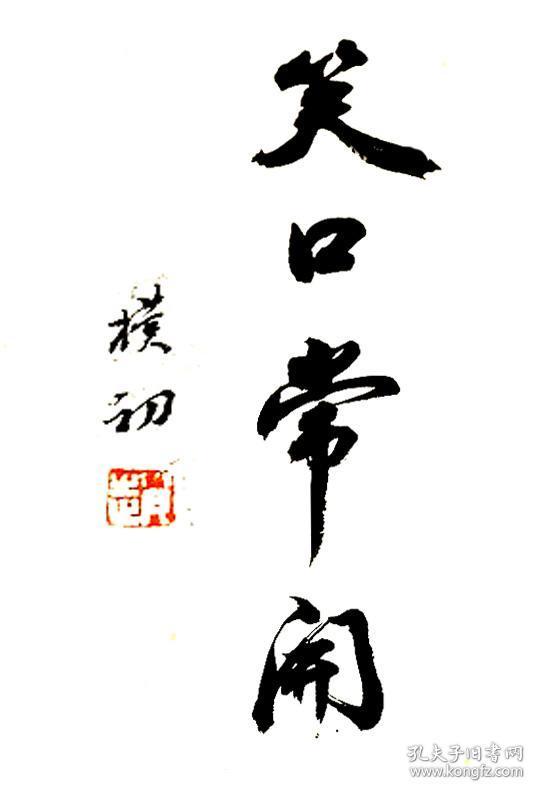 笑口常開
樸初
孔夫子旧书网
www.kongfz.com